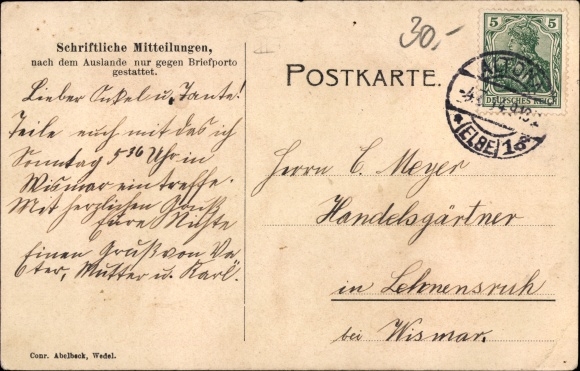 Schriftliche Mitteilungen,
nach dem Auslande nur gegen Briefporto
gestattet.
Lieber Onkel u. Tante!
Teile euch mit das ich
Sonntag 5 36 Uhr in
Wismar eintreffe.
Mit herzlichen Gruß
Eure Nichte
Einen Gruß von Va-
ter, Mutter u. Karl.
Conr. Abelbeck, Wedel.
30,-
POSTKARTE.
5 5
DEUTSCHES REICH
ALTONA
(ELBE) 1
Herrn C. Meyer
Handelsgärtner
in Lehnensruh
bei Wismar.